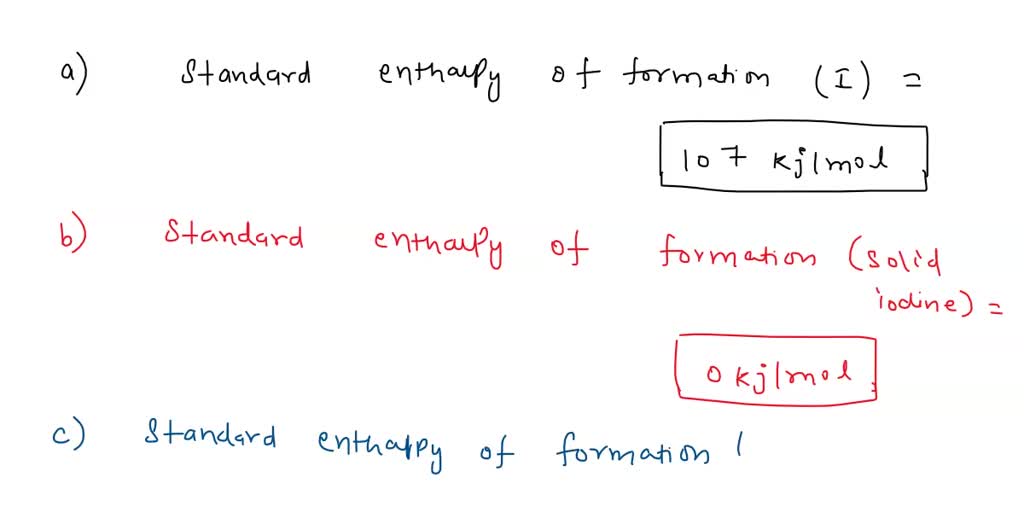 a) Standard enthalpy of formation (I) =
107 kj/mol
b) Standard enthalpy of formation (solid
iodine) =
0 kj/mol
c) Standard enthalpy of formation (